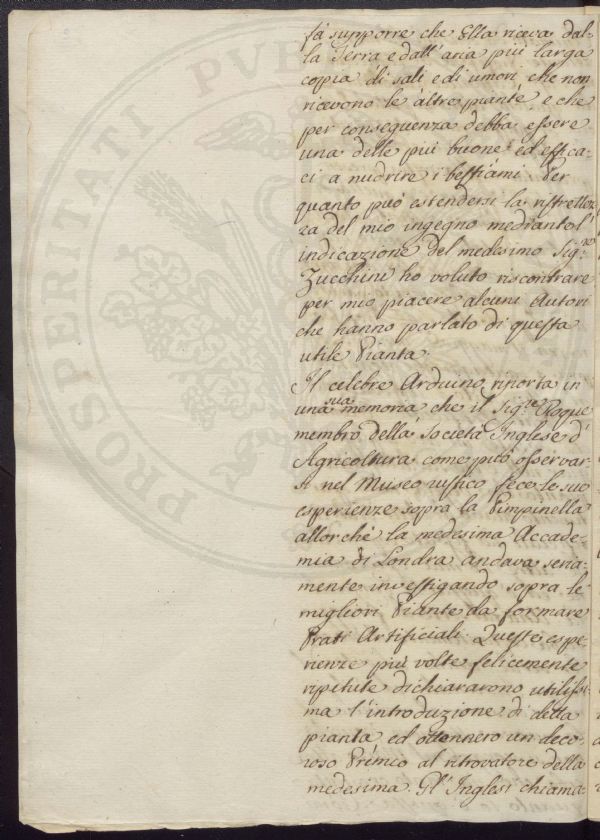 fà supporre che Ella riceva dal-
la Terra e dall'aria più larga
copia di sali e di umori che non
ricevono le altre piante, e che
per conseguenza debba essere
una delle più buone ed effica-
ci a nudrire i bestiami. Per
quanto può estendersi la ristrettez-
za del mio ingegno mediante l'
indicazione del medesimo Sig.re
Zucchini ho voluto riscontrare
per mio piacere alcuni Autori
che hanno parlato di questa
utile Pianta.
Il celebre Arduino riporta in
una sua memoria che il Sig.re Roque
membro della Società Inglese d'
Agricoltura come può osservar-
si nel Museo rustico fece le sue
esperienze sopra la Pimpinella
allorché la medesima Accade-
mia di Londra andava seria-
mente investigando sopra le
migliori Piante da formare
Prati Artificiali. Queste espe-
rienze più volte felicemente
ripetute dichiararono utilissi-
ma l'introduzione di detta
pianta ed ottennero un deco-
roso Premio al ritrovatore della
medesima. Gl'Inglesi chiama-
PROSPERITATI PVB